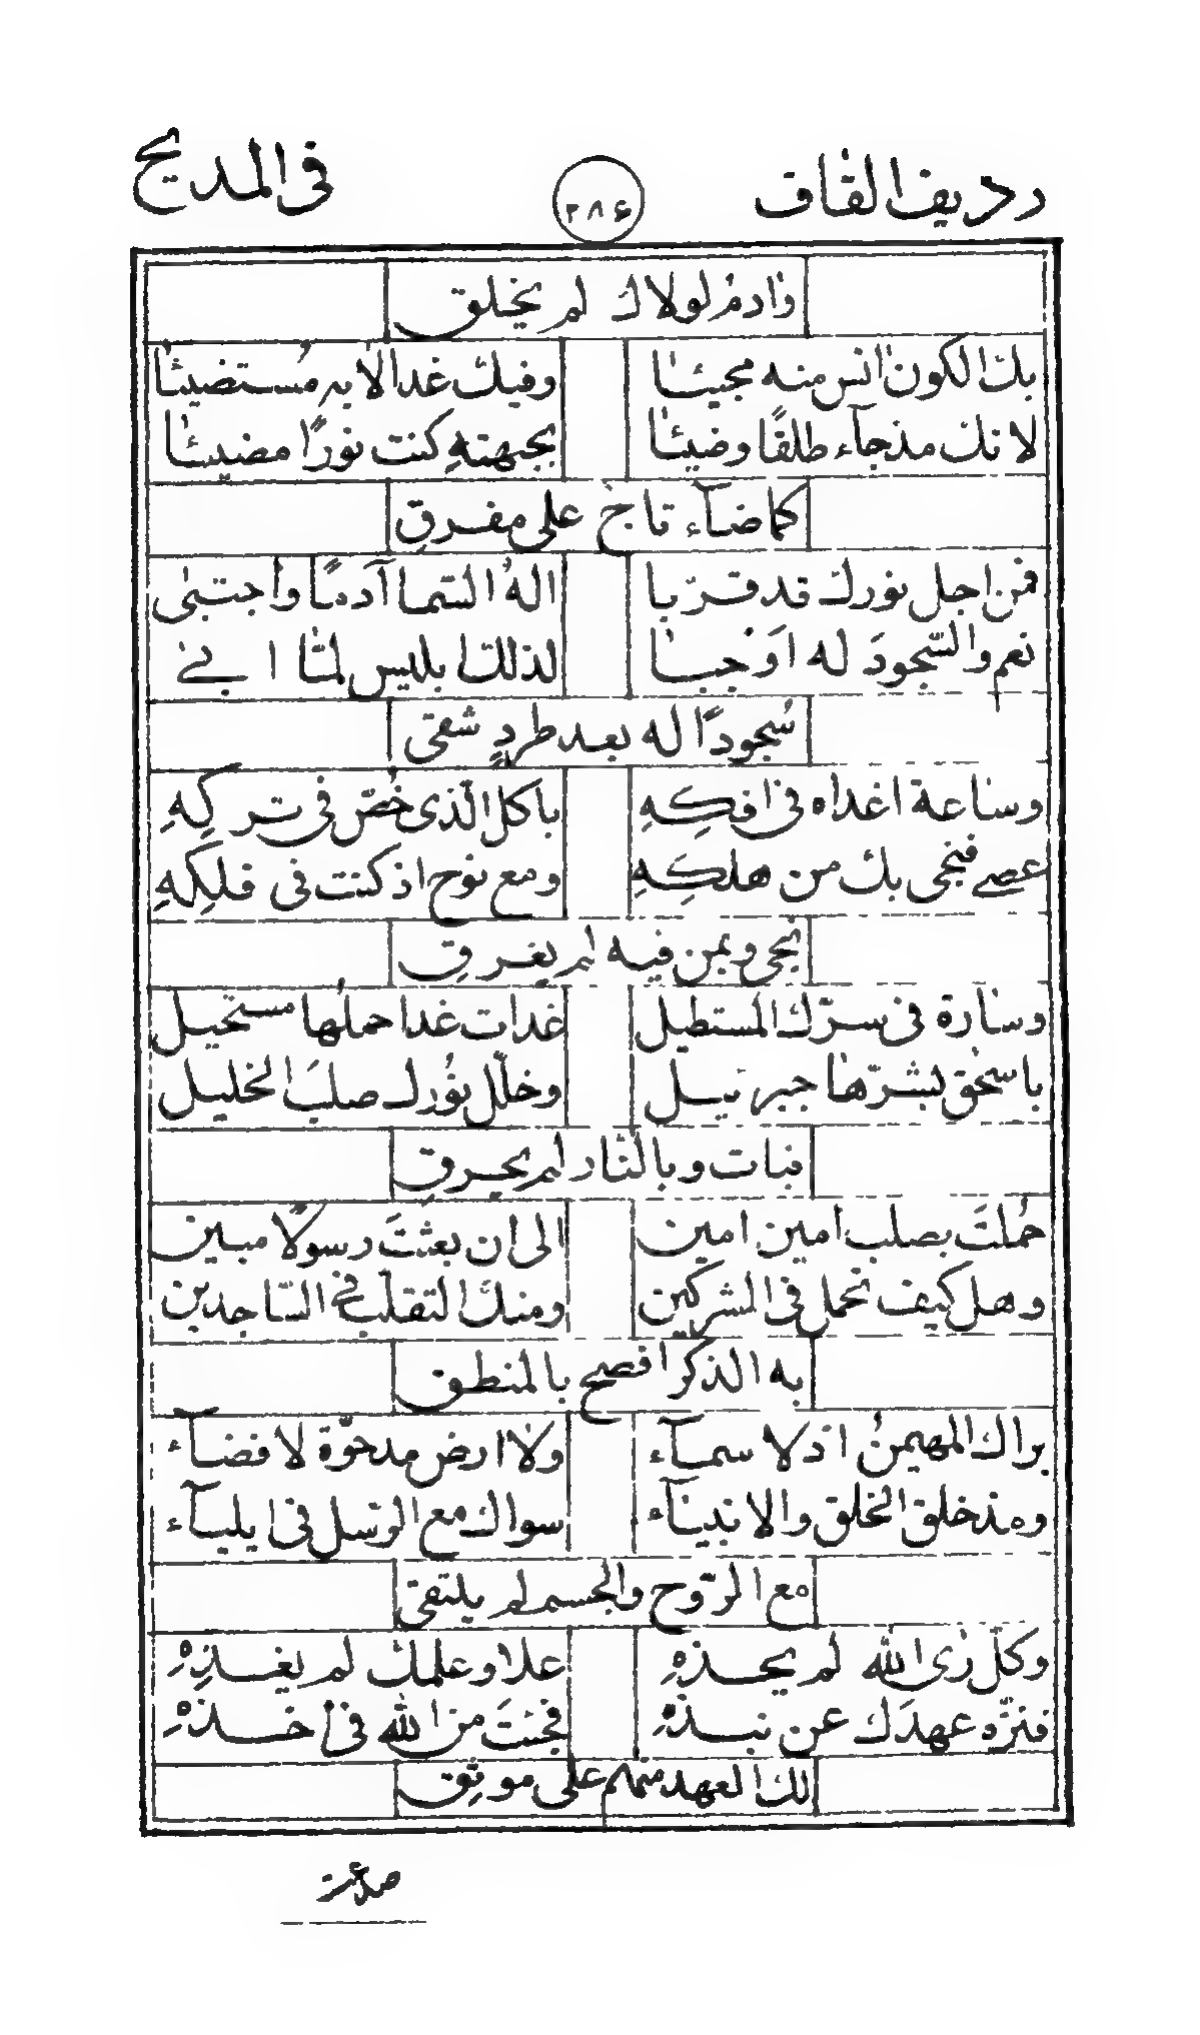 رديف القاف ٢٨۶ فى المديح
وادم لولاك لم يخلق
بك الكون انس منه مجيئا وفيك غدا لا به مستضيئا
لانك مذ جآء طلقًا وضيئا بجبهته كنت نورًا مضيئا
كما ضآء تاج على مفرقِ
فمن اجل نورك قد قرّبا اله السّما آدمًا واجتبى
نعم والسّجودَ له اوجبا لذلك ابليس لمّا ابى
سُجودًا له بعد طردٍ شقى
وساعة اغداه فى افكِهِ باكل الّذى خُصّ فى تركِهِ
عصى فنجى بك من هلكِهِ ومع نوح اذ كنت فى فلكِهِ
نجى وبمن فيه لم يغرقِ
وسارة فى سرّك المستطيل غدات غدا حملُها مستحيل
باسحق بشّرها جبرئيل وخلّل نورك صلبَ الخليل
فبات وبالنّار لم يحرقِ
حُملتَ بصلب امين امين الى ان بعثتَ رسولًا مبين
وهل كيف تحمل فى المشركين ومنك التقلّب فى السّاجدين
به الذكر افصح بالمنطق
براك المهيمنُ اذ لا سمآء ولا ارض مدحوّة لا فضآء
ومذ خلق الخلق والانبيآء سواك مع الرّسل فى ايليآء
مع الرّوح والجسم لم يلتقى
وكلّ راى الله لم يحذهِ علا وعلمك لم يغذهِ
فنزّه عهدَك عن نبذهِ فجئتَ من الله فى اخذهِ
لك العهد منهم على موثِقِ